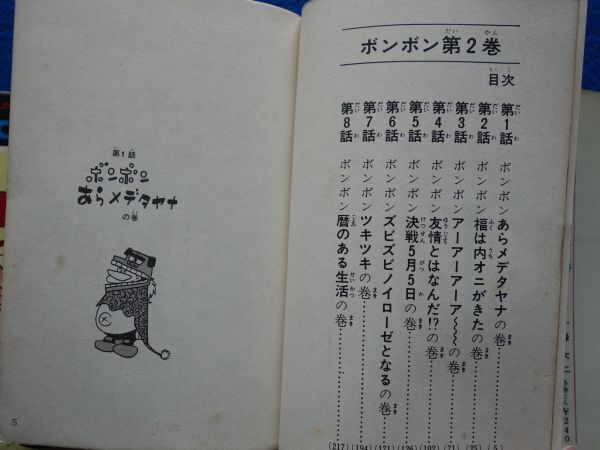 ボンボン第2巻
目次
第1話 ボンボンあらメデタヤナの巻……(5)
第2話 ボンボン福は内オニがきたの巻……(25)
第3話 ボンボンアーアーアーア〜〜〜の巻……(71)
第4話 ボンボン友情とはなんだ!?の巻……(102)
第5話 ボンボン決戦5月5日の巻……(126)
第6話 ボンボンズビズビノイローゼとなるの巻……(171)
第7話 ボンボンツキツキの巻……(194)
第8話 ボンボン暦のある生活の巻……(217)
第1話
ボンボン
あらメデタヤナ
の巻
5
¥240